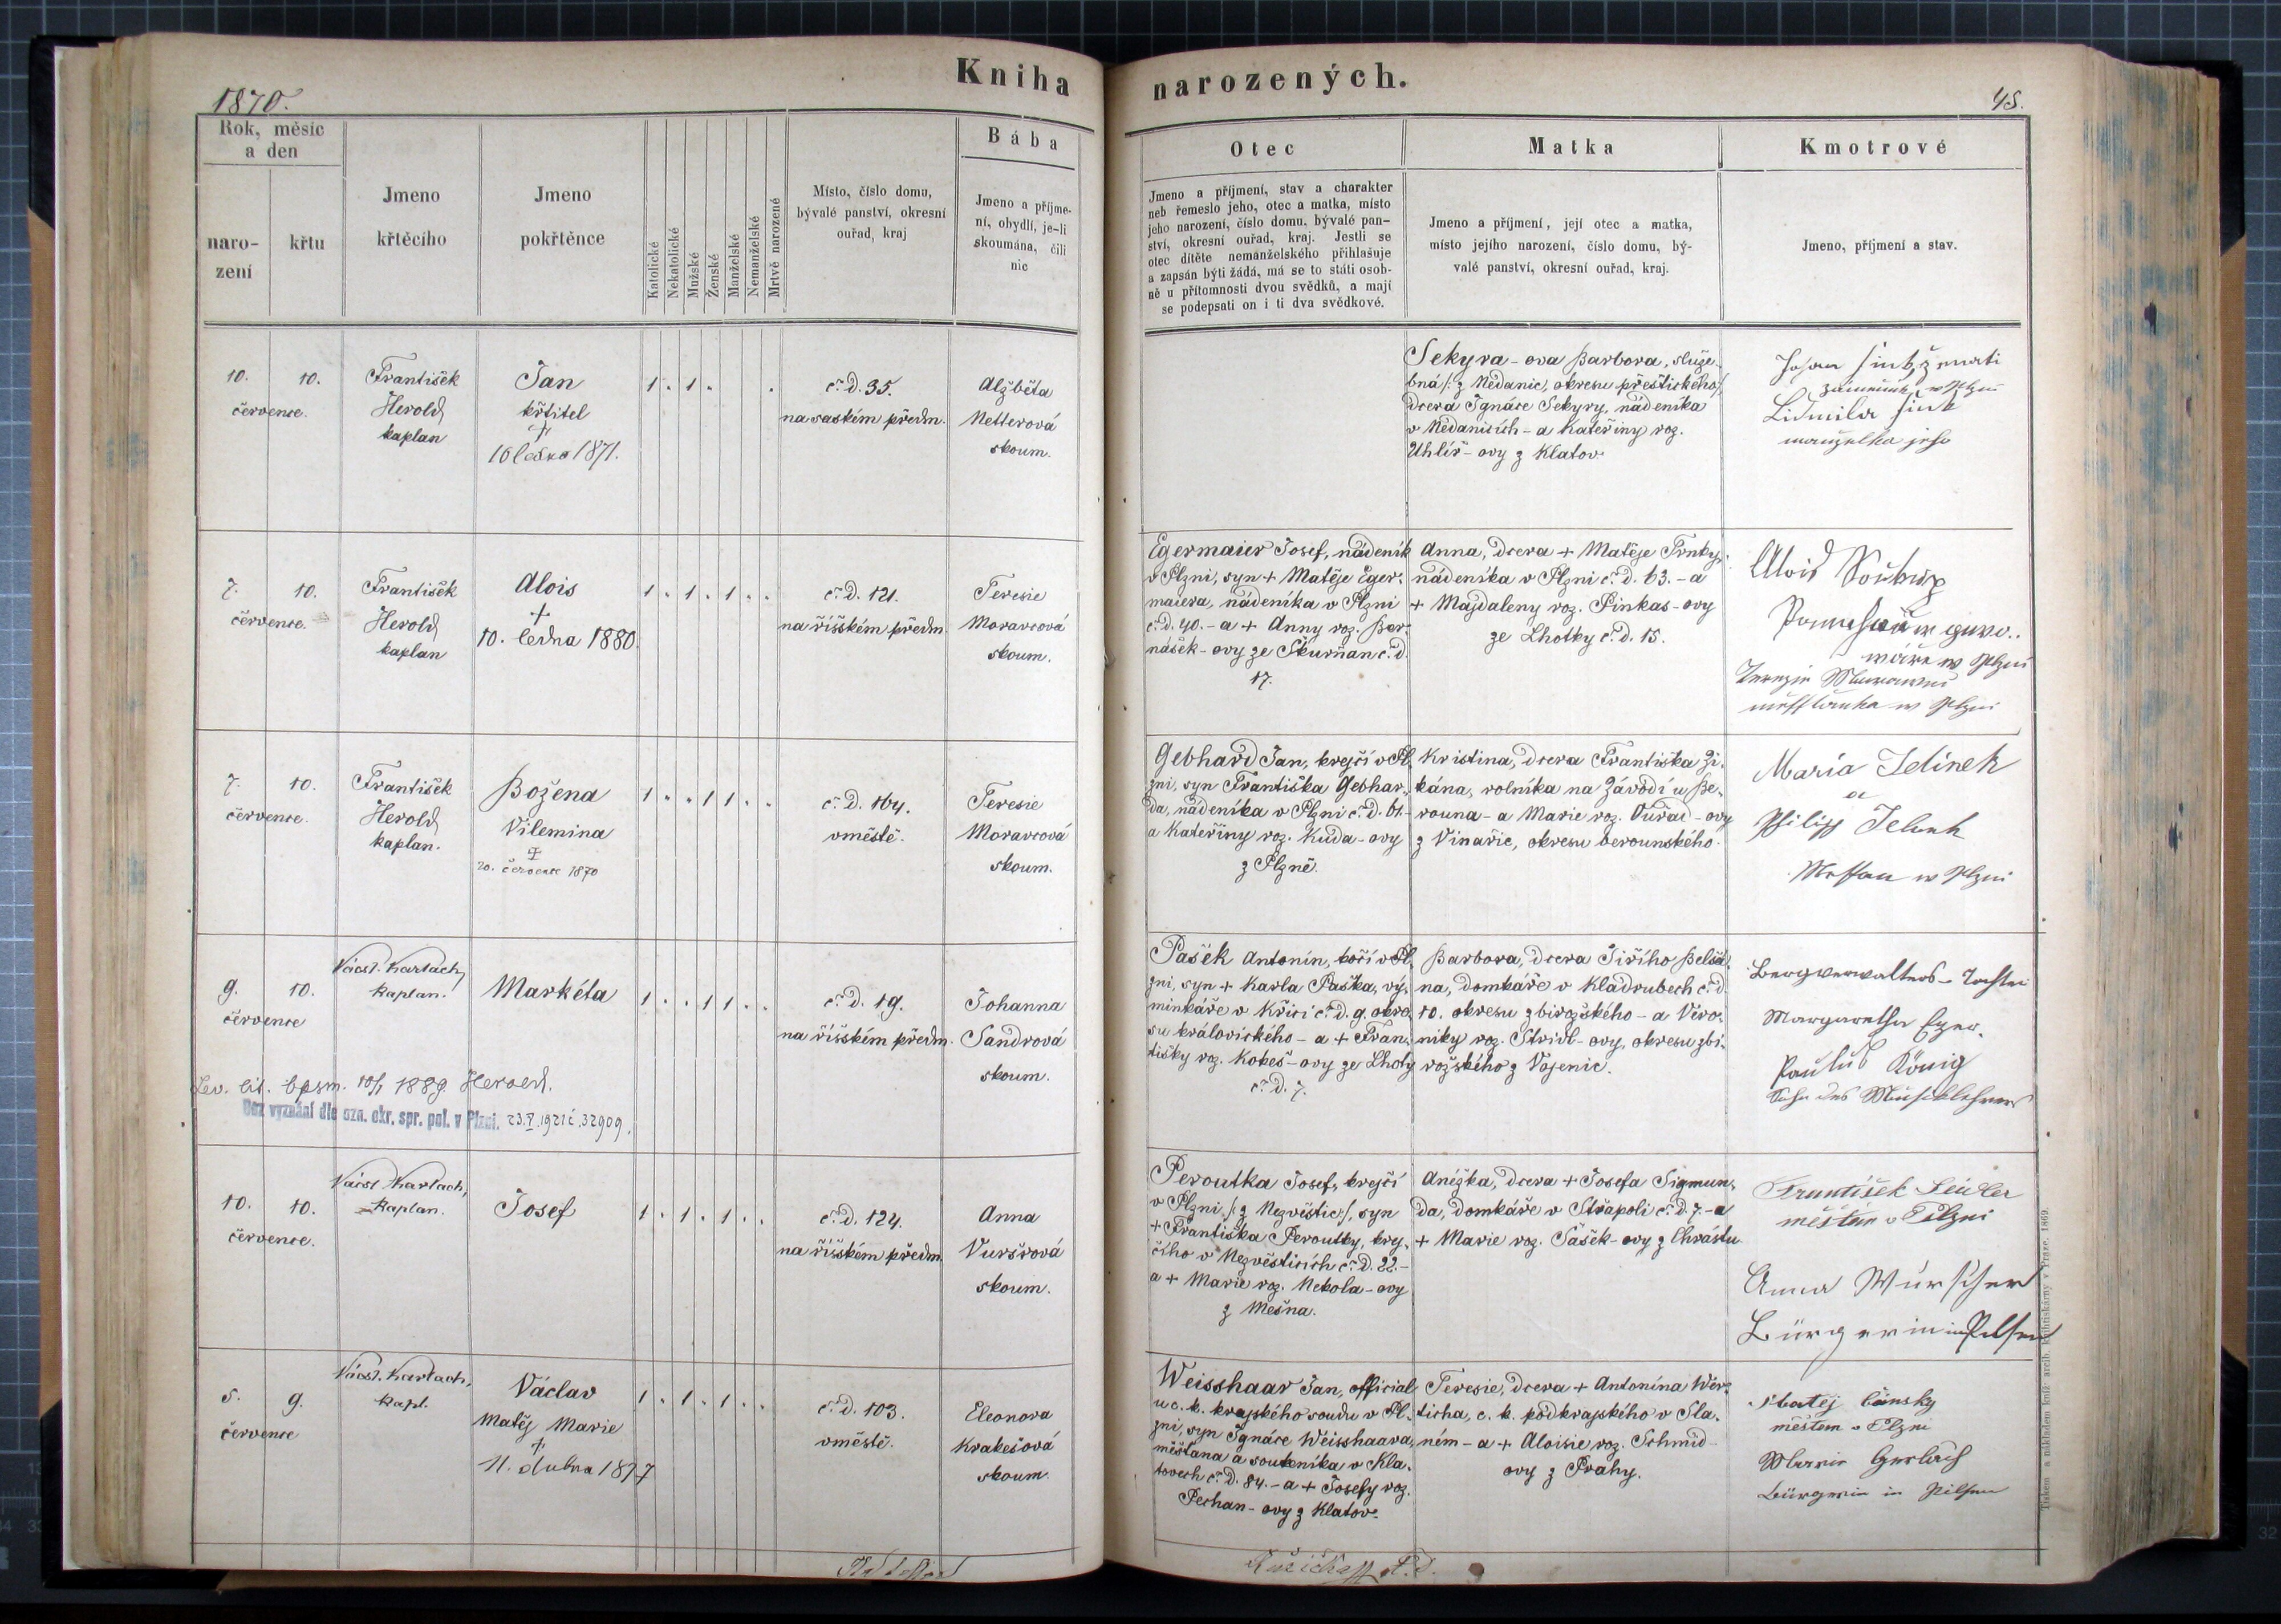 Kniha narozených.
1870.
45.
Rok, měsíc
a den
naro-
zení
křtu
Jmeno
křtěcího
Jmeno
pokřtěnce
Katolické
Nekatolické
Mužské
Ženské
Manželské
Nemanželské
Mrtvě narozené
Místo, číslo domu,
bývalé panství, okresní
ouřad, kraj
Bába
Jmeno a příjme-
ní, obydlí, je-li
skoumána, čili
nic
Otec
Jmeno a příjmení, stav a charakter
neb řemeslo jeho, otec a matka, místo
jeho narození, číslo domu, bývalé pan-
ství, okresní ouřad, kraj. Jestli se
otec dítěte nemanželského přihlašuje
a zapsán býti žádá, má se to státi osob-
ně u přítomnosti dvou svědků, a mají
se podepsati on i ti dva svědkové.
Matka
Jmeno a příjmení, její otec a matka,
místo jejího narození, číslo domu, bý-
valé panství, okresní ouřad, kraj.
Kmotrové
Jmeno, příjmení a stav.
10. 10.
července.
František
Herold
kaplan
Jan
křtitel
+
1871.
1 . 1 . .
č. d. 35.
na saském předm.
Alžběta
Netterová
skoum.
Sekyra-ova Barbora, služe-
bná /: z Nedanic, okresu přestického :/
dcera Ignáce Sekyry, nádeníka
v Nedanicích - a Kateřiny roz.
Uhlíř-ovy z Klatov.
Lidmila
manželka jeho
7. 10.
července.
František
Herold
kaplan
Alois
+
10. ledna 1880.
1 . 1 . 1 . .
č. d. 121.
na říšském předm.
Teresie
Moravcová
skoum.
Egermaier Josef, nádeník
v Plzni, syn + Matěje Eger-
maiera, nádeníka v Plzni
č. d. 40. - a + Anny roz. Bar-
nášek-ovy ze Skurňan č. d.
17.
Anna, dcera + Matěje Trnky,
nádeníka v Plzni č. d. 63. - a
+ Majdaleny roz. Pinkas-ovy
ze Lhotky č. d. 15.
Alois Soukup
w Plzni
w Plzni
7. 10.
července.
František
Herold
kaplan.
Božena
Vilemina
+
20. července 1870
1 . . 1 1 . .
č. d. 164.
v městě.
Teresie
Moravcová
skoum.
Gebhard Jan, krejčí v Pl-
zni, syn Františka Gebhar-
da, nádeníka v Plzni č. d. 61. -
a Kateřiny roz. Kuda-ovy
z Plzně.
Kristina, dcera Františka Zi-
kána, rolníka na Závodí u Be-
rouna - a Marie roz. Ouřad-ovy
z Vinařic, okresu berounského.
Maria Jelinek
a
Philipp Jelinek
w Plzni
9. 10.
července
Václ. Karlach,
kaplan.
Markéta
1 . . 1 1 . .
č. d. 19.
na říšském předm.
Johanna
Sandrová
skoum.
Pašek Antonín, kočí v Pl-
zni, syn + Karla Paška, vý-
minkáře v Křici č. d. 9. okre-
su královického - a + Fran-
tišky roz. Kokeš-ovy ze Lhoty
č. d. 7.
Barbora, dcera Jiřího Belšá-
na, domkáře v Kladrubech č. d.
10. okresu zbirožského - a Vero-
niky roz. Streibl-ovy, okresu zbi-
rožského z Vojenic.
Bergverwalters-Tochter
Margaretha
Paulus König
Sohn des Musiklehrers
Lev. lit. bpsm. 10/1 1889. Herold.
Bez vyznání dle ozn. okr. spr. pol. v Plzni. 23.V.1921 č. 32909.
10. 10.
července.
Václ. Karlach,
kaplan.
Josef
1 . 1 . 1 . .
č. d. 124.
na říšském předm.
Anna
Vuršrová
skoum.
Peroutka Josef, krejčí
v Plzni, /: z Nezvěstic :/, syn
+ Františka Peroutky, krej-
čího v Nezvěsticích č. d. 22. -
a + Marie roz. Nekola-ovy
z Mešna.
Anežka, dcera + Josefa Sigmun-
da, domkáře v Střapoli č. d. 7. - a
+ Marie roz. Šašek-ovy z Chrástu
František Seidler
měšťan v Plzni
Anna Wurscher
Bürgerin in Pilsen
5. 9.
července
Václ. Karlach,
kapl.
Václav
Matěj Marie
+
11. dubna 1877
1 . 1 . 1 . .
č. d. 103.
v městě.
Eleonora
Krakešová
skoum.
Weisshaar Jan, official
u c. k. krajského soudu v Pl-
zni, syn Ignáce Weisshaara,
měšťana a soukeníka v Kla-
tovech č. d. 84. - a + Josefy roz.
Pechan-ovy z Klatov.
Teresie, dcera + Antonína Wer-
ticha, c. k. podkrajského v Sla-
ném - a + Aloisie roz. Schmid-
ovy z Prahy.
Matěj
měšťan v Plzni
Marie Gerlach
Bürgerin in Pilsen
Tiskem a nákladem kníž. arcib. knihtiskárny v Praze. 1869.